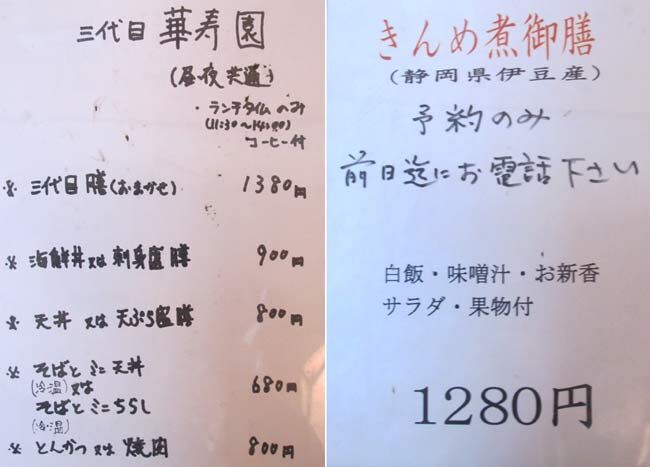 三代目 華寿園
(昼夜共通)
・ランチタイムのみ
(11:30〜14:00)
コーヒー付
※ 三代目膳(おまかせ) 1380円
※ 海鮮丼又は刺身膳 900円
※ 天丼 又は 天ぷら膳 800円
※ そばとミニ天丼
(冷温)又は 680円
そばとミニちらし
(冷温)
※ とんかつ又は焼肉 800円
きんめ煮御膳
(静岡県伊豆産)
予約のみ
前日迄にお電話下さい
白飯・味噌汁・お新香
サラダ・果物付
1280円